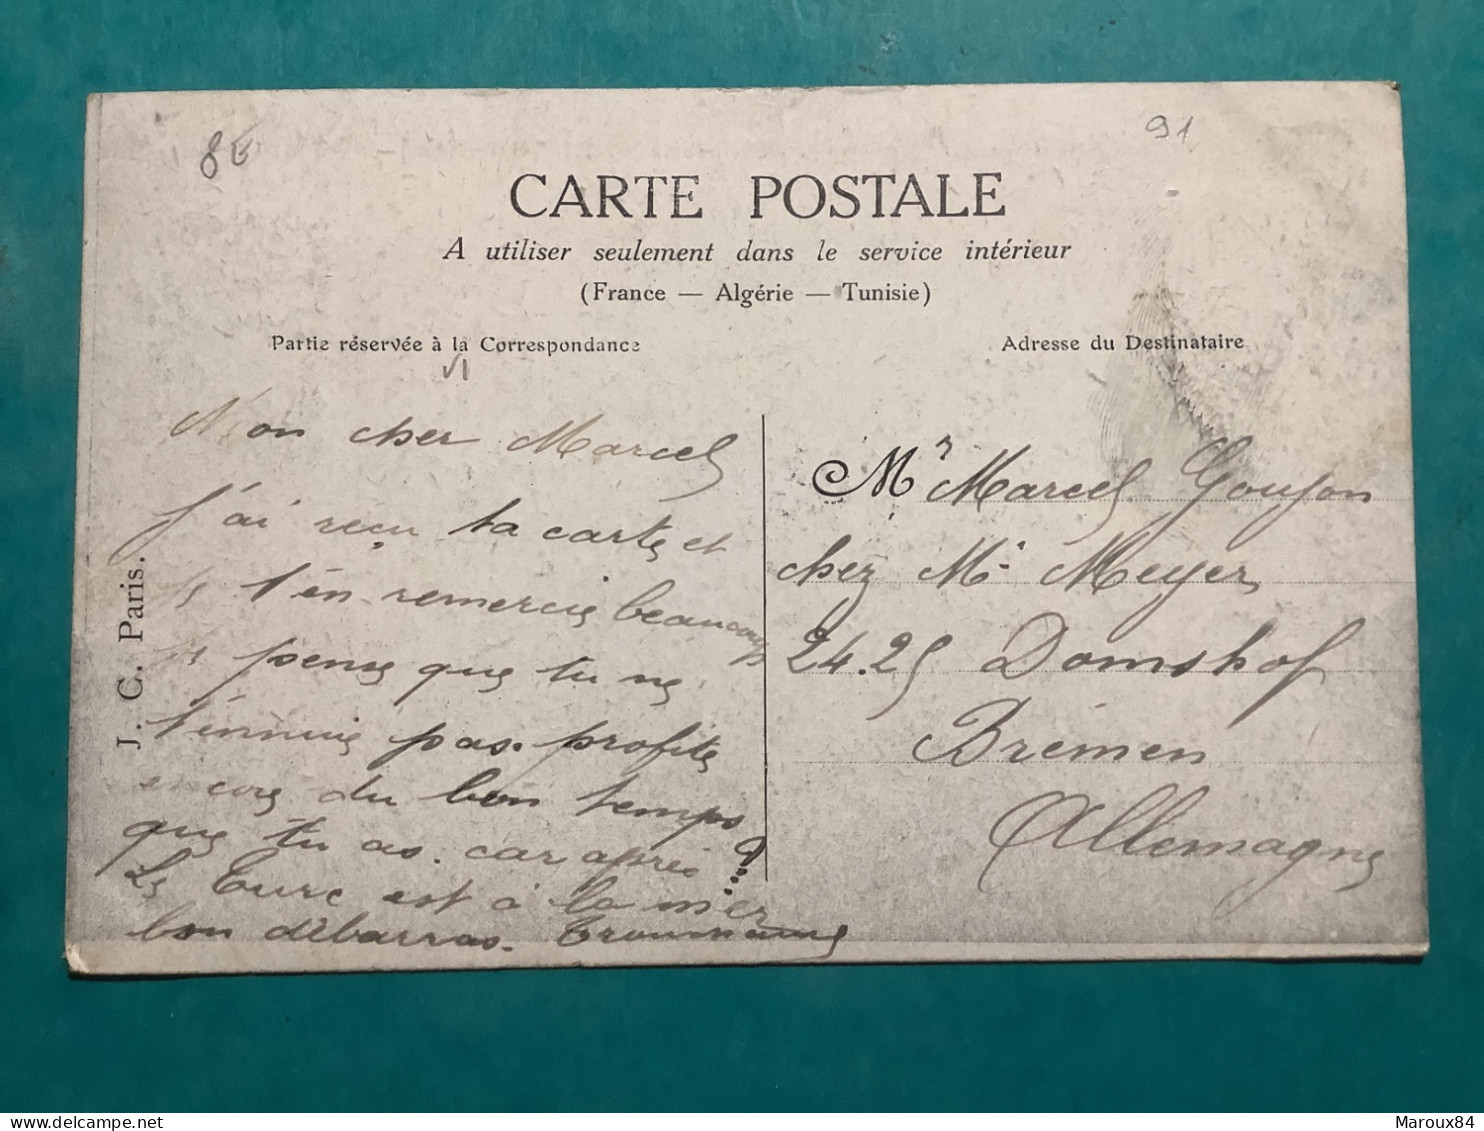 8€
91
CARTE POSTALE
A utiliser seulement dans le service intérieur
(France — Algérie — Tunisie)
Partie réservée à la Correspondance
Adresse du Destinataire
J. C. Paris.
Mon cher Marcel
j'ai reçu ta carte et
je t'en remercie beaucoup
je pense que tu ne
t'énnuie pas. profite
encore du bon temps
que tu as. car après
Le Turc est à la mer
bon débarras.
Mr Marcel Goujon
chez Mr Meyer
24.25 Domshof
Brémen
Allemagne
Maroux84